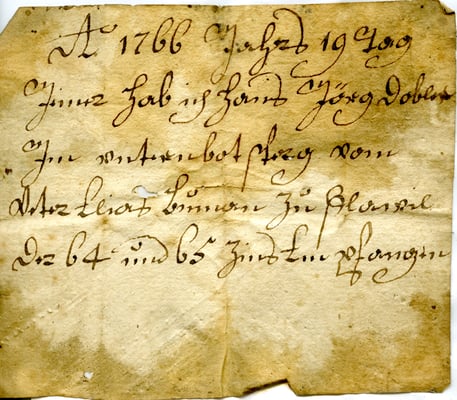 A° 1766 Jahrs 19 Tag
Jener hab ich hans Jörg Dobler
Im unternbotsberg vom
veter Elias büman zu flawil
der 64 und 65 Zins Em pfangen